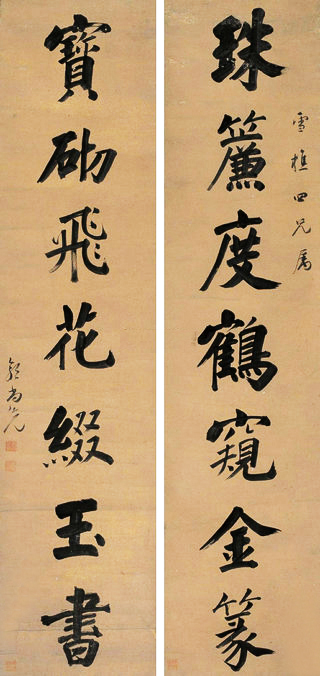 珠簾度鶴窺金篆
雪樵四兄属
寶砌飛花綴玉書
郭尚先